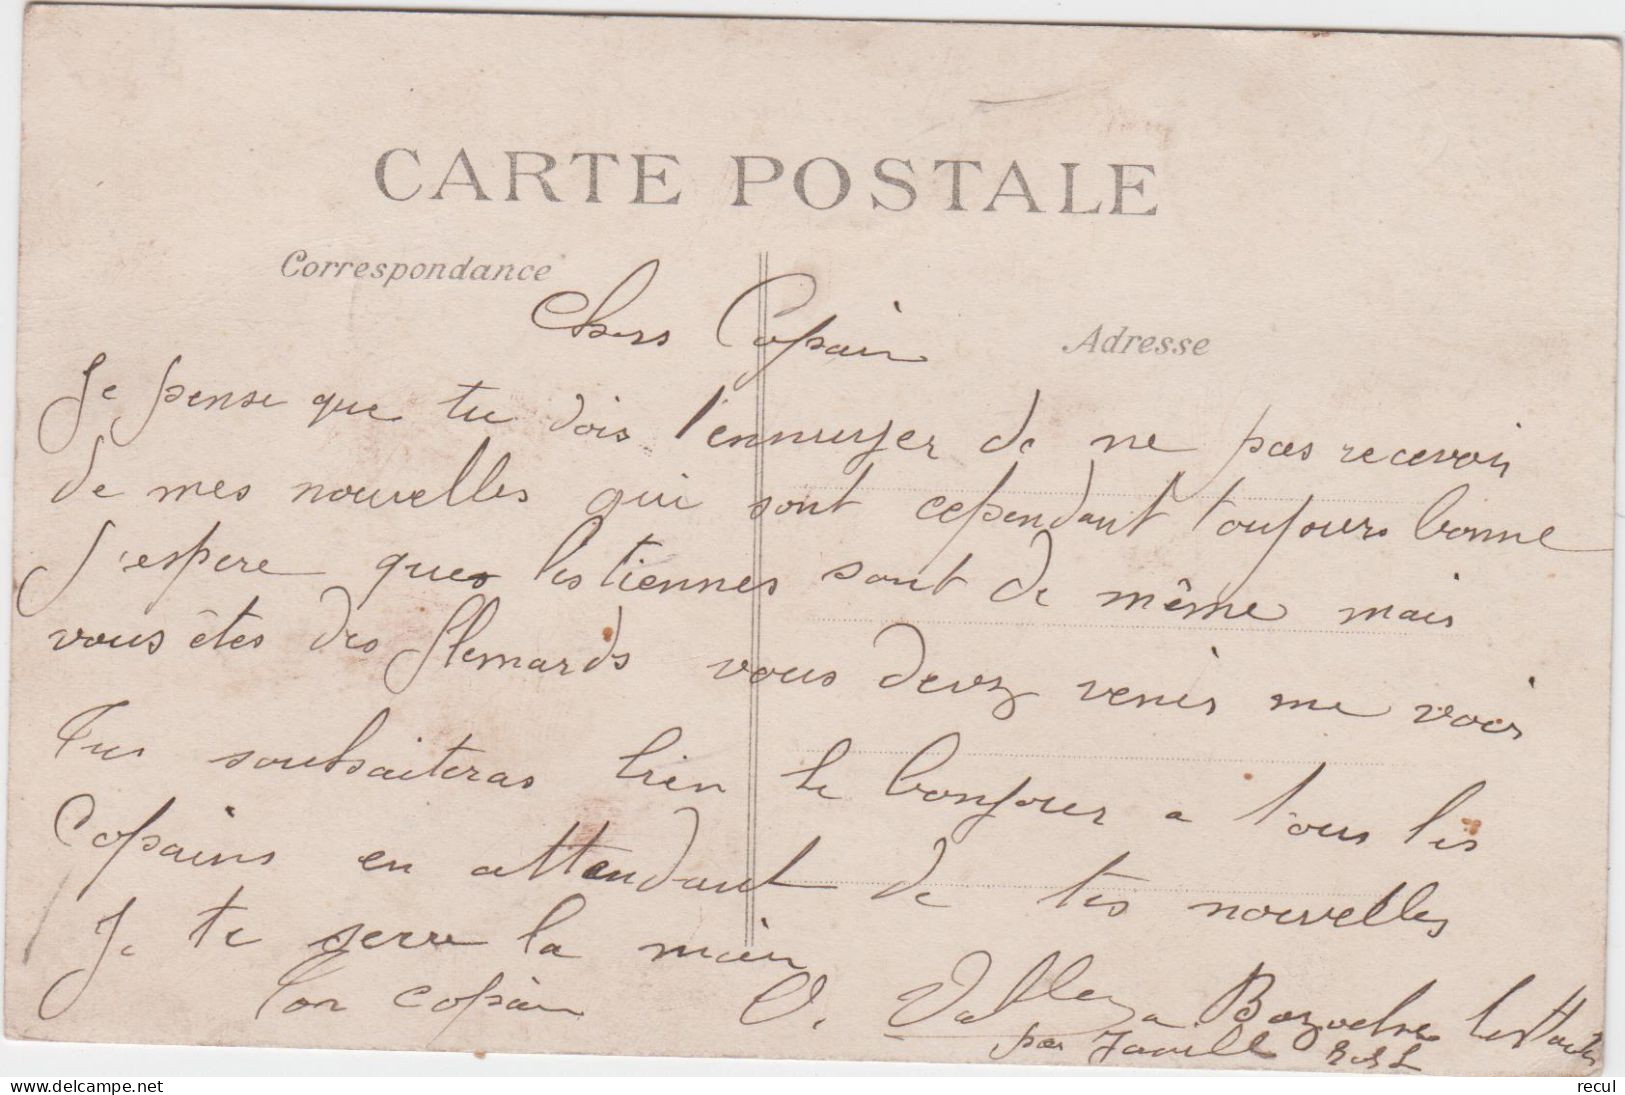 CARTE POSTALE
Correspondance
Adresse
Chers Copain
Je pense que tu dois t'ennuyer de ne pas recevoir
de mes nouvelles qui sont cependant toujours bonne
J'espere ques les tiennes sont de même mais
vous êtes des flemards vous devez venir me voir
Tus souhaiteras bien le bonjour a tous les
Copains en attendant de tes nouvelles
Je te serre la main
Ton copain V. Vallez a Bazoche les Hautes
par Janville E et L
delcampe.net
recul